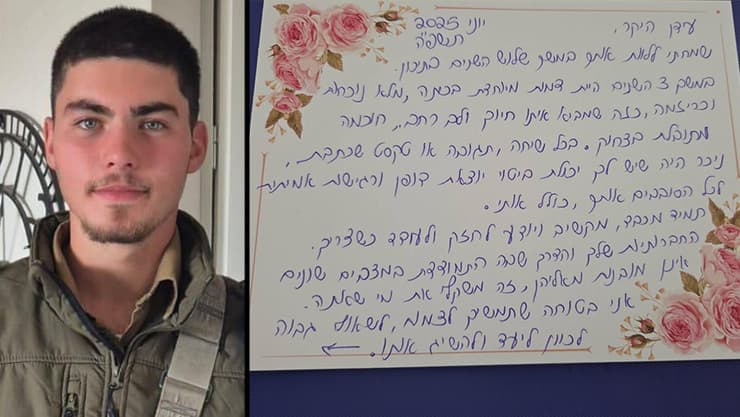 יוני 2025
עידן היקר,
תשפ"ה
שמחתי ללוות אותך במשך שלוש השנים בתיכון.
במשך 3 השנים היית דמות מיוחדת בכתה, מלא נוכחות
וכריזמה, כזה שמביא איתו חיוך ולב רחב,, חוכמה
מתובלת בצחוק. בכל שיחה, תגובה או טקסט שכתבת,
ניכר היה שיש לך יכולת ביטוי יוצאת דופן ורגישות אמיתית
לכל הסובבים אותך, כולל אותי.
תמיד מכבד, מקשיב ויודע לחזק ולעודד כשצריך.
החברתיות שלך והדרך שבה התמודדת במצבים שונים
אינן מובנות מאליהן, זה משקף את מי שאתה.
אני בטוחה שתמשיך לצמוח, לשאוף גבוה
לכוון ליעד ולהשיג אותו.